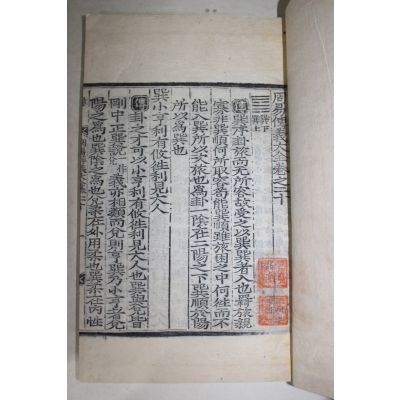 周易傳義大全卷之二十
巽下
巽上
傳巽序卦旅而无所容故受之以巽巽者入也羇旅親
寡非巽順何所取容苟能巽順雖旅困之中何往而不
能入巽所以次旅也為卦一陰在二陽之下巽順於陽
所以為巽也
巽小亨利有攸往利見大人
傳卦之才可以小亨利有攸往利見大人也巽與兌皆
剛中正巽說義亦相類而兌則亨巽乃小亨者兌
陽之為也巽陰之為也兌柔在外用柔也巽柔在內性